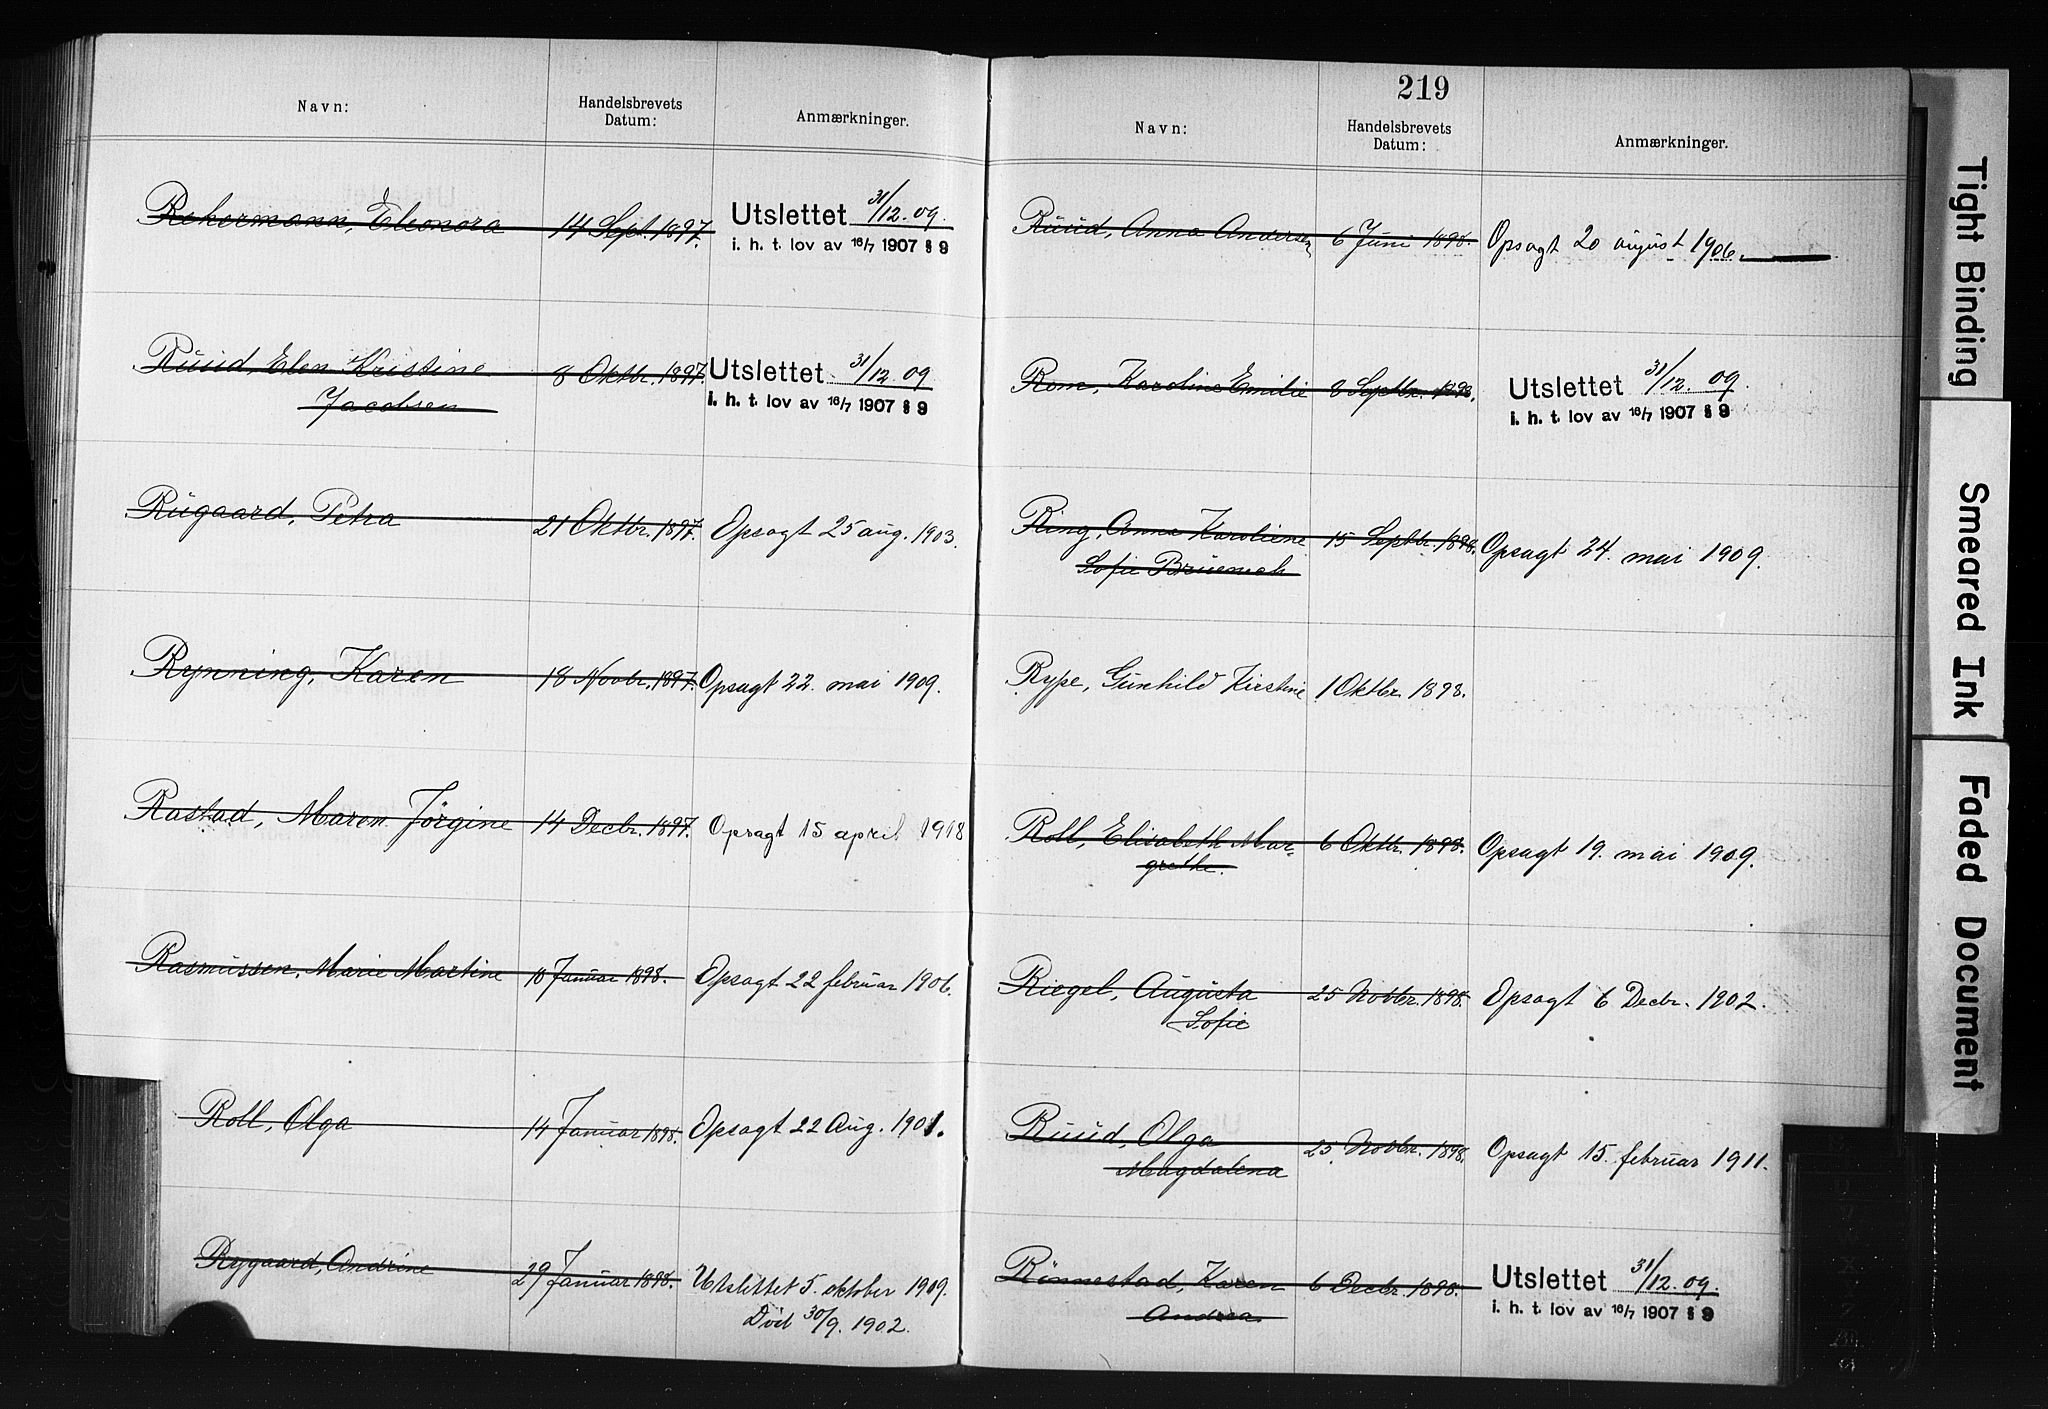 Navn: Handelsbrevets Datum: Anmærkninger.
Rekermann, Eleonora 14 Sept. 1897. Utslettet 31/12. 09.
i. h. t. lov av 16/7 1907 § 9
Ruud, Elen Kristine 8 Oktbr. 1897. Utslettet 31/12. 09
Jacobsen i. h. t. lov av 16/7 1907 § 9
Rugaard, Petra 21 Oktbr. 1897. Opsagt 25 aug. 1903.
Rynning, Karen 18 Novbr. 1897. Opsagt 22. mai 1909.
Rastad, Maren Jörgine 14 Decbr. 1897. Opsagt 15 april 1918
Rasmussen, Marie Martine 18 Januar 1898. Opsagt 22 februar 1906.
Roll, Olga 14 Januar 1898. Opsagt 22 Aug. 1901.
Rygaard, Andrine 29 Januar 1898. Utslettet 5. oktober 1909.
Död 30/9. 1902.
219
Navn: Handelsbrevets Datum: Anmærkninger.
Ruud, Anna Andersen 6 Juni 1898. Opsagt 20 august 1906.
Rom, Karoline Emilie 8 Septbr. 1898. Utslettet 31/12. 09.
i. h. t. lov av 16/7 1907 § 9
Ring, Anna Karoliene 15 Septbr. 1898. Opsagt 24. mai 1909.
Sofie Bruenech
Rype, Gunhild Kirstine 1 Oktbr. 1898.
Roll, Elisabeth Mar- 6 Oktbr. 1898. Opsagt 19. mai 1909.
grethe.
Riegel, Augusta 25 Novbr. 1898. Opsagt 6 Decbr. 1902.
Sofie
Ruud, Olga 25 Novbr. 1898. Opsagt 15. februar 1911.
Magdalena
Rönnestad, Karen 6 Decbr. 1898. Utslettet 31/12. 09.
Andrea. i. h. t. lov av 16/7 1907 § 9
Tight Binding
Smeared Ink
Faded Document